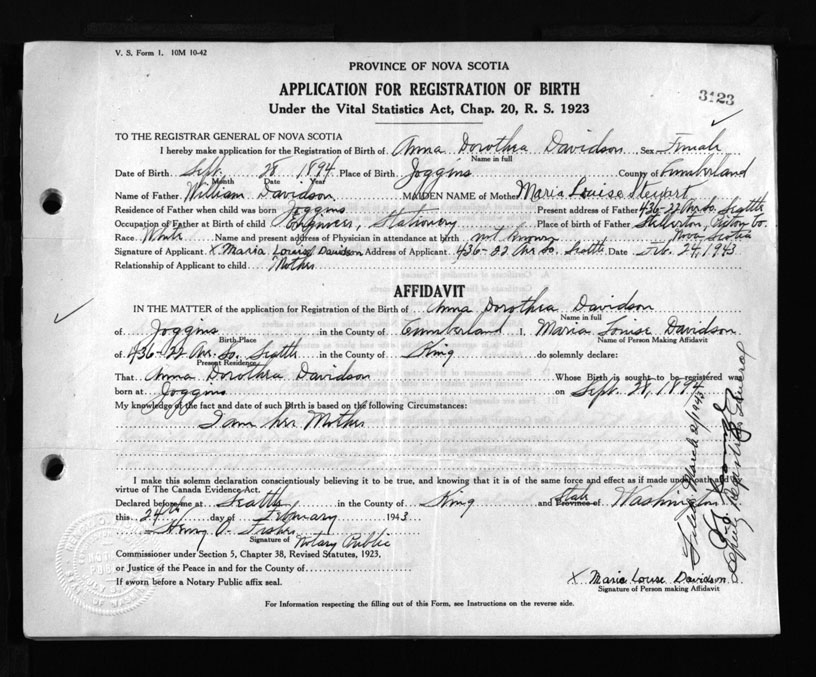 V. S. Form 1. 10M 10-42
PROVINCE OF NOVA SCOTIA
APPLICATION FOR REGISTRATION OF BIRTH
3123
Under the Vital Statistics Act, Chap. 20, R. S. 1923
TO THE REGISTRAR GENERAL OF NOVA SCOTIA
I hereby make application for the Registration of Birth of Anna Dorothea Davidson Sex Female
Name in full
Date of Birth Sept. 28 1894 Place of Birth Joggins County of Cumberland
Month Date Year
Name of Father William Davidson MAIDEN NAME of Mother Maria Louise Stewart
Residence of Father when child was born Joggins Present address of Father 436-22 Av. So. Seattle
Occupation of Father at Birth of child Engineer, Stationery Place of birth of Father Stellerton, Pictou Co.
Race White Name and present address of Physician in attendance at birth not known Nova Scotia
Signature of Applicant X Maria Louise Davidson Address of Applicant 436-22 Av. So. Seattle Date Feb. 24, 1943
Relationship of Applicant to child Mother
AFFIDAVIT
IN THE MATTER of the application for Registration of the Birth of Anna Dorothea Davidson
Name in full
of Joggins in the County of Cumberland I, Maria Louise Davidson
Birth Place Name of Person Making Affidavit
of 436-22 Av. So. Seattle in the County of King do solemnly declare:
Present Residence
That Anna Dorothea Davidson Whose Birth is sought to be registered was
born at Joggins on Sept. 28, 1894
My knowledge of the fact and date of such Birth is based on the following Circumstances:
I am her Mother
I make this solemn declaration conscientiously believing it to be true, and knowing that it is of the same force and effect as if made under oath and by
virtue of The Canada Evidence Act.
Declared before me at Seattle in the County of King and State Province of Washington
this 24th day of February 1943
Henry O. Fisher
Signature of Notary Public
Commissioner under Section 5, Chapter 38, Revised Statutes, 1923,
or Justice of the Peace in and for the County of
If sworn before a Notary Public affix seal.
X Maria Louise Davidson
Signature of Person making Affidavit
For Information respecting the filling out of this Form, see Instructions on the reverse side.
Filed March 2/1943
Deputy Registrar General